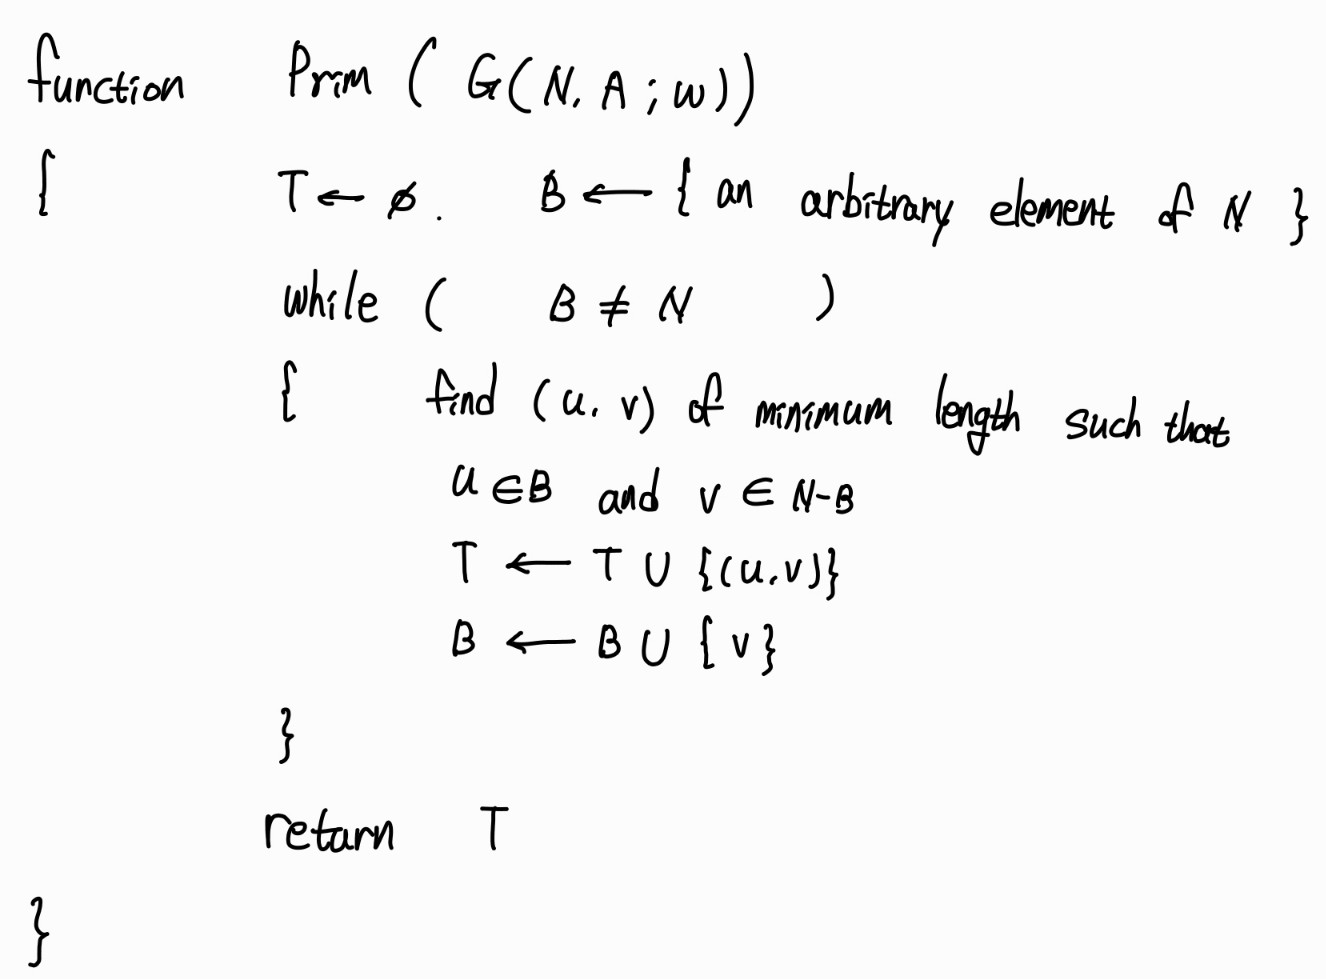 function Prim ( G(N, A ; w))
{ T ← ∅. B ← { an arbitrary element of N }
while ( B ≠ N )
{ find (u, v) of minimum length such that
u ∈ B and v ∈ N-B
T ← T ∪ {(u,v)}
B ← B ∪ { v}
}
return T
}